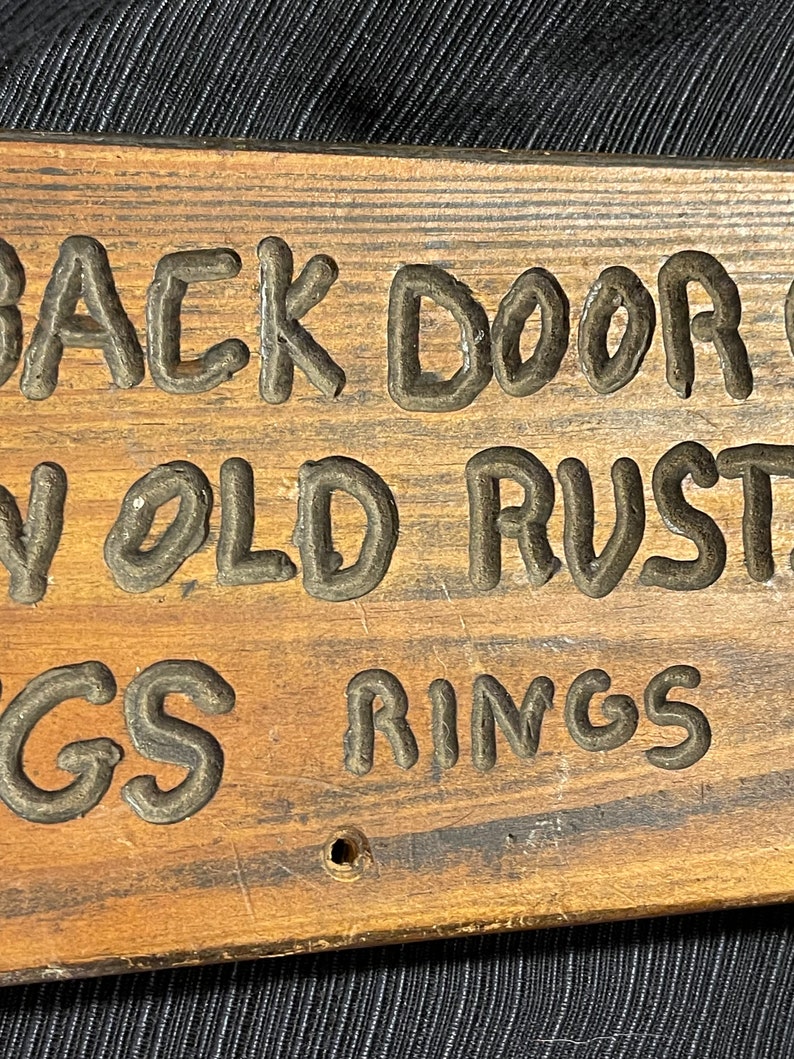 BACK DOOR
OLD RUST
GS RINGS